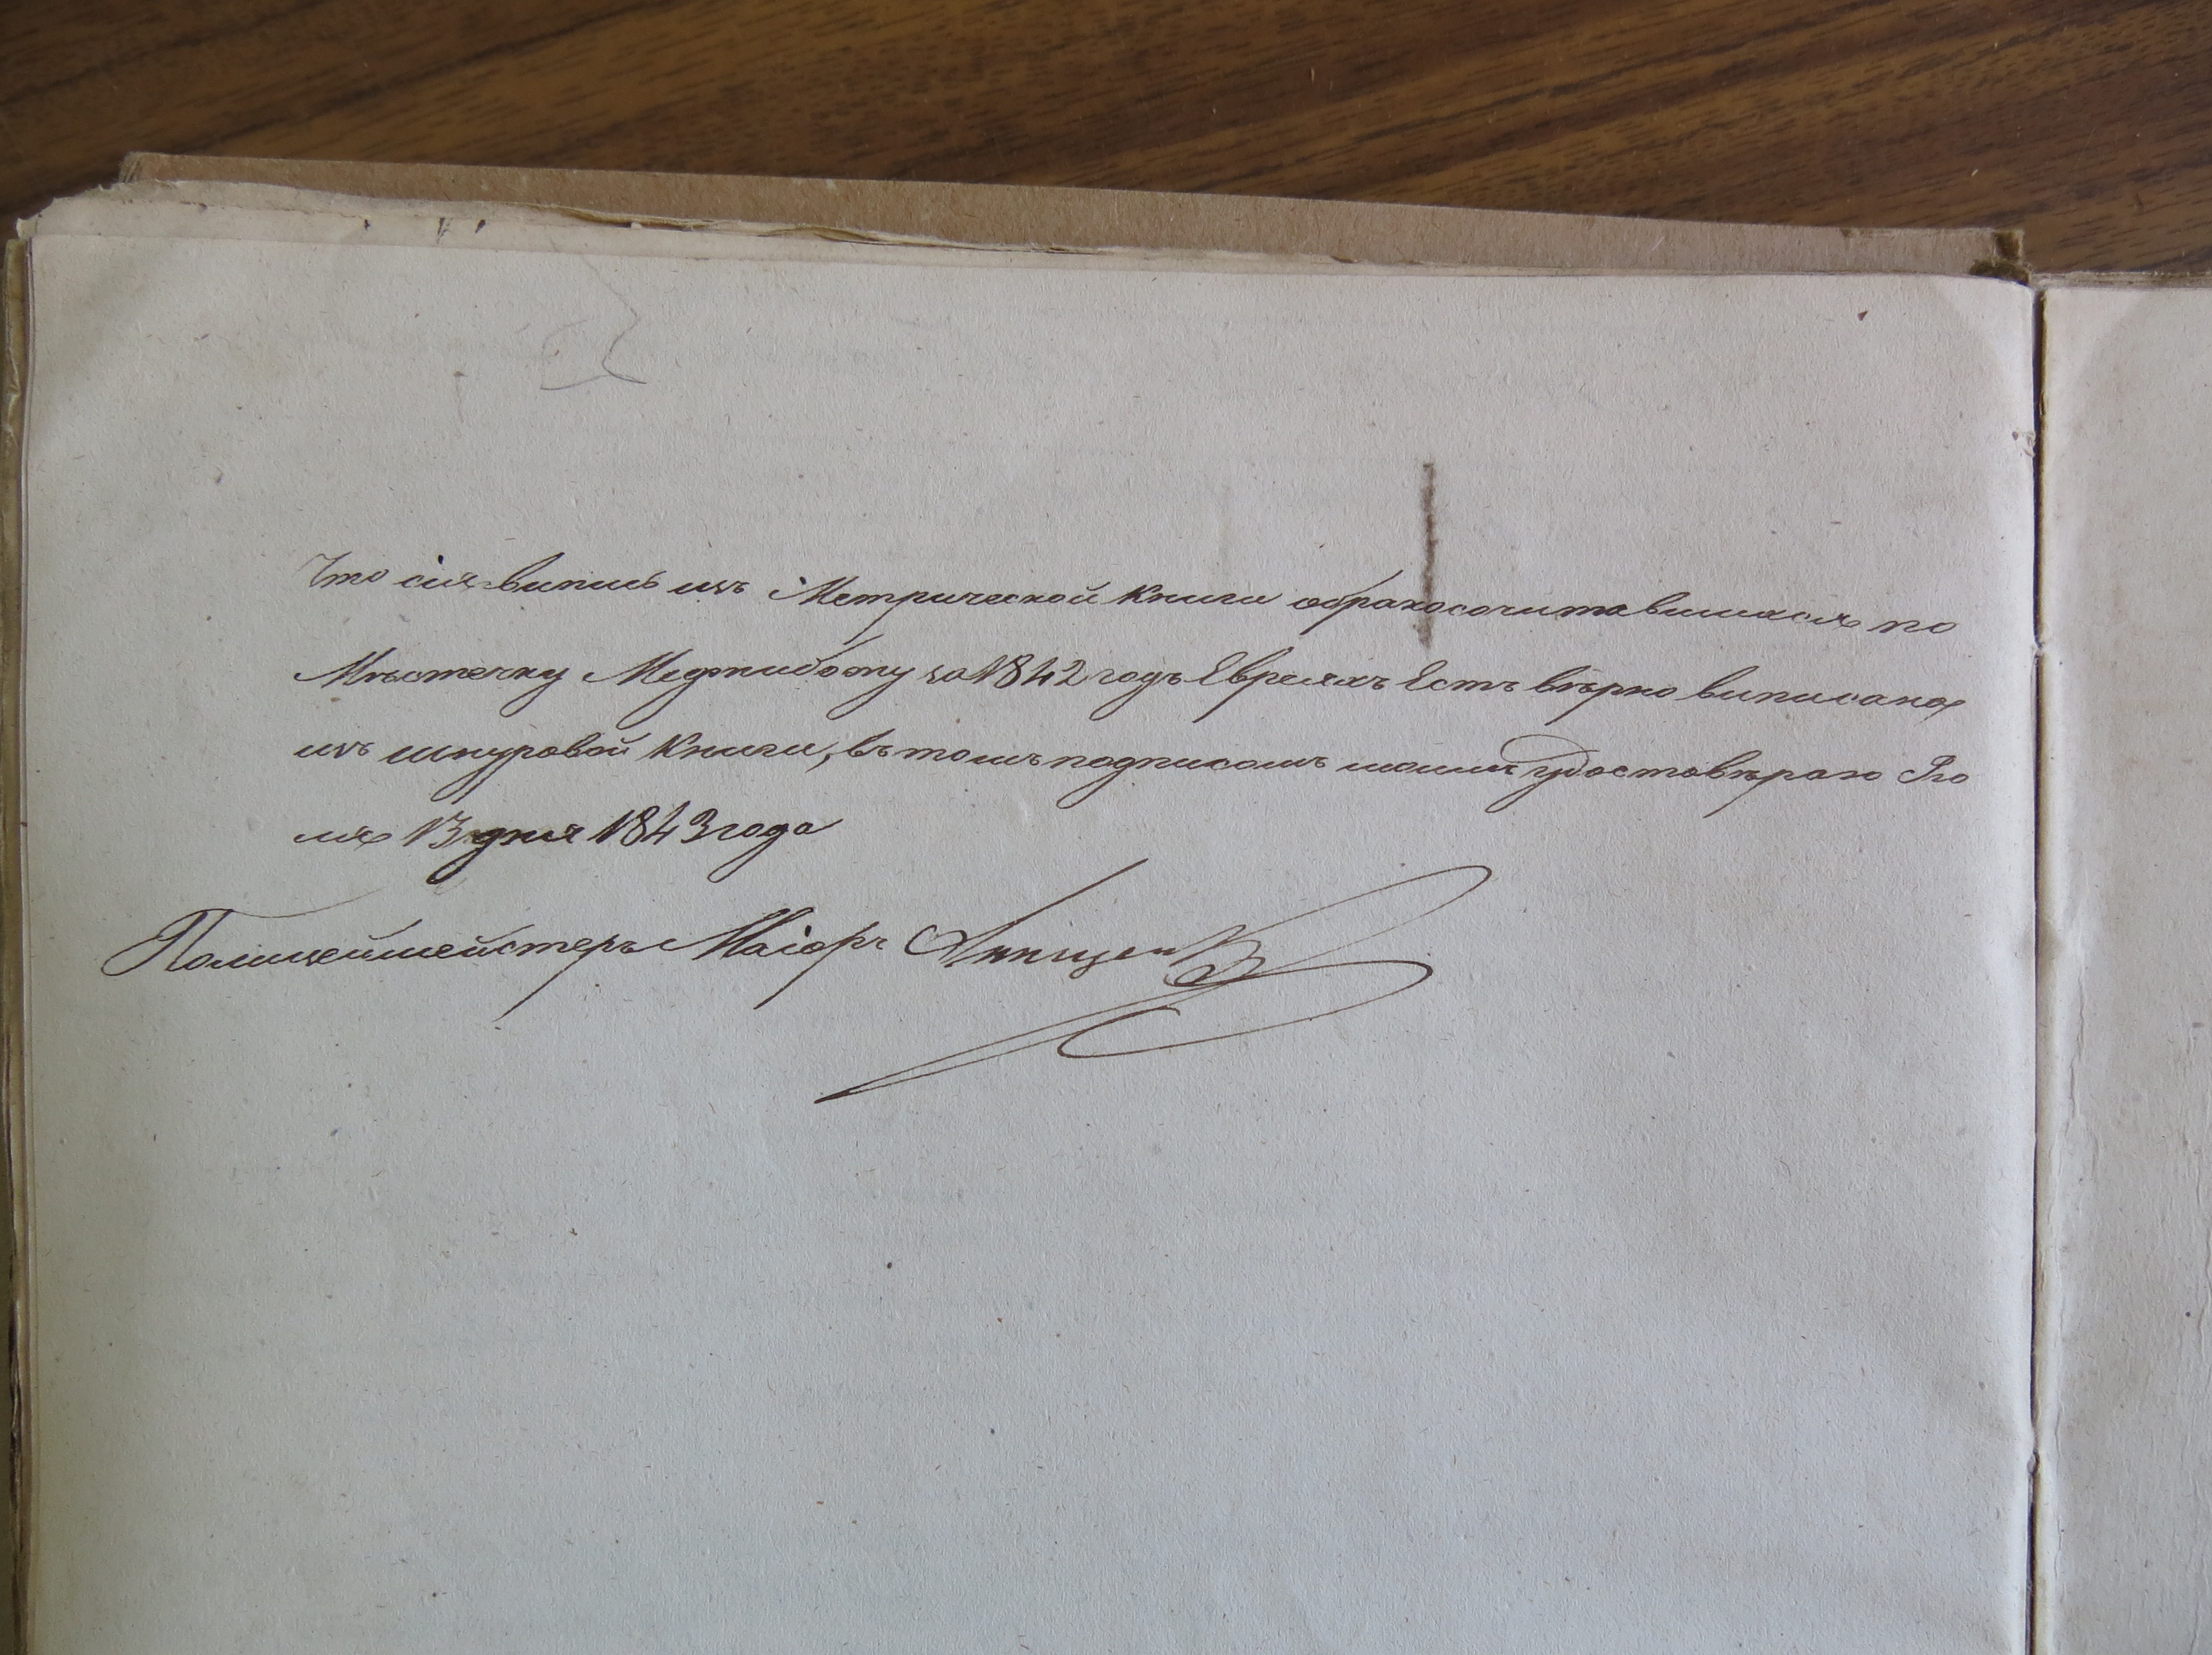 Что сія выпись изъ Метрической Книги обракосочитавшихся по
Мѣстечку Меджибожу за 1842 годъ Евреяхъ Есть вѣрно виписана
изъ шнуровой Книги, въ томъ подписомъ моимъ удостовѣраю Ію
ля 13 дня 1843 года
Полицеймейстеръ Маіоръ